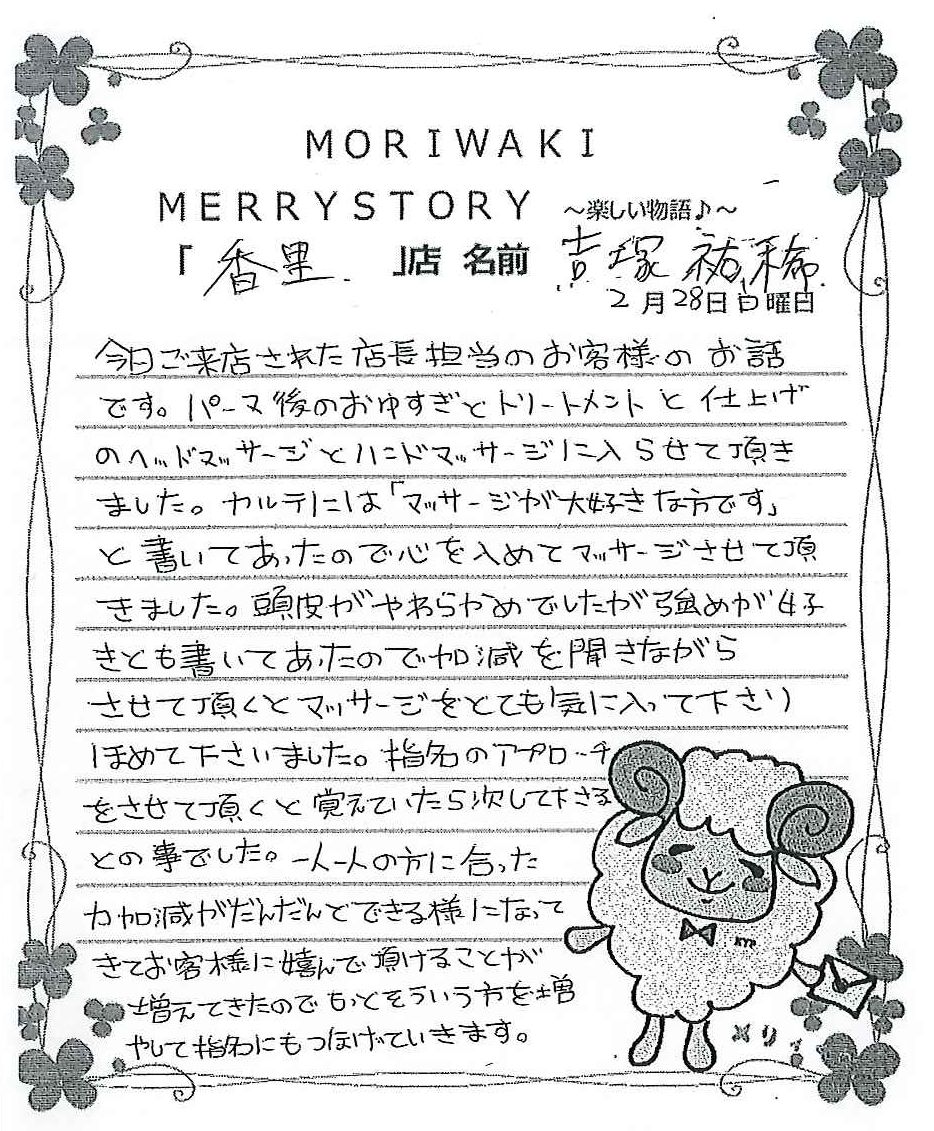 MORIWAKI
MERRYSTORY ～楽しい物語♪～
「香里」店 名前 吉塚 祐稀
2月28日日曜日
今日ご来店された店長担当のお客様のお話
です。パーマ後のおゆすぎとトリートメントと仕上げ
のヘッドマッサージとハンドマッサージに入らせて頂き
ました。カルテには「マッサージが大好きな方です」
と書いてあったので心を込めてマッサージさせて頂
きました。頭皮がやわらかめでしたが強めが好
きとも書いてあったので加減を聞きながら
させて頂くとマッサージをとても気に入って下さり
ほめて下さいました。指名のアプローチ
をさせて頂くと覚えていたら次して下さる
との事でした。一人一人の方に合った
力加減がだんだんとできる様になって
きてお客様に嬉んで頂けることが
増えてきたのでもっとそういう方を増
やして指名にもつなげていきます。
メリィ